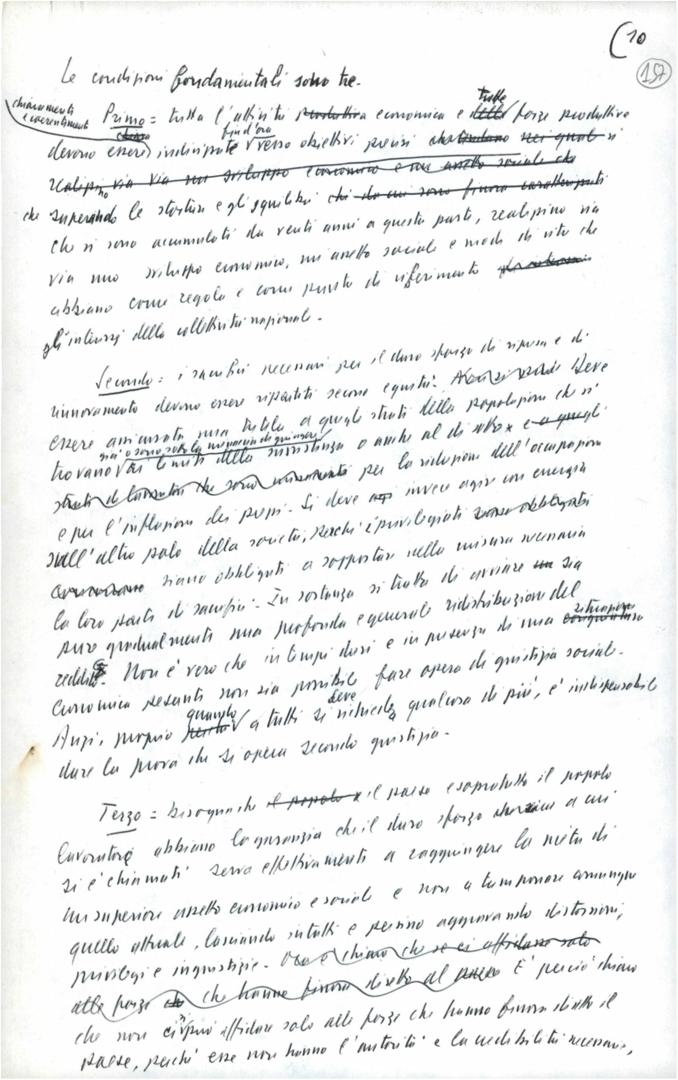 (10
19
Le condizioni fondamentali sono tre.
chiaramente
e coerentemente
Primo = tutta l'attività produttiva economica e delle tutte forze produttive
devono essere indirizzate fin d'ora verso obiettivi precisi nei quali si
realizzino via via uno sviluppo economico e un assetto sociale che
che superando le storture e gli squilibri che da cui sono finora caratterizzati
che si sono accumulati da venti anni a questa parte, realizzino via
via uno sviluppo economico, un assetto sociale e modi di vita che
abbiano come regola e come punto di riferimento
gli interessi della collettività nazionale.
Secondo: i sacrifici necessari per il duro sforzo di ripresa e di
rinnovamento devono essere ripartiti secondo equità. Deve
essere assicurata una tutela a quegli strati della popolazione che si
già o sono sotto la minaccia di
trovano ai limiti della sussistenza o anche al di sotto e a quegli
strati di lavoratori che sono per la riduzione dell'occupazione
e per l'inflazione dei prezzi. Si deve invece agire con energia
sull'altro polo della società, perché i privilegiati sono obbligati
siano obbligati a sopportare nella misura necessaria
la loro parte di sacrifici. In sostanza si tratta di avviare sia
pure gradualmente una profonda e generale ridistribuzione del
reddito. Non è vero che in tempi duri e in presenza di una situazione
economica pesante non sia possibile fare opera di giustizia sociale.
Anzi, proprio perché quando a tutti si deve richiedere qualcosa di più, è indispensabile
dare la prova che si opera secondo giustizia.
Terzo = bisogna che il popolo il paese e soprattutto il popolo
lavoratore abbiano la garanzia che il duro sforzo a cui
si è chiamati serva effettivamente a raggiungere la meta di
un superiore assetto economico e sociale e non a tamponare comunque
quello attuale, lasciando intatti e persino aggravando distorsioni,
privilegi e ingiustizie. Ora è chiaro che se ci affidano solo
alle forze che hanno finora diretto il paese È perciò chiaro
che non ci si può affidare solo alle forze che hanno finora diretto il
paese, perché esse non hanno l'autorità e la credibilità necessarie,